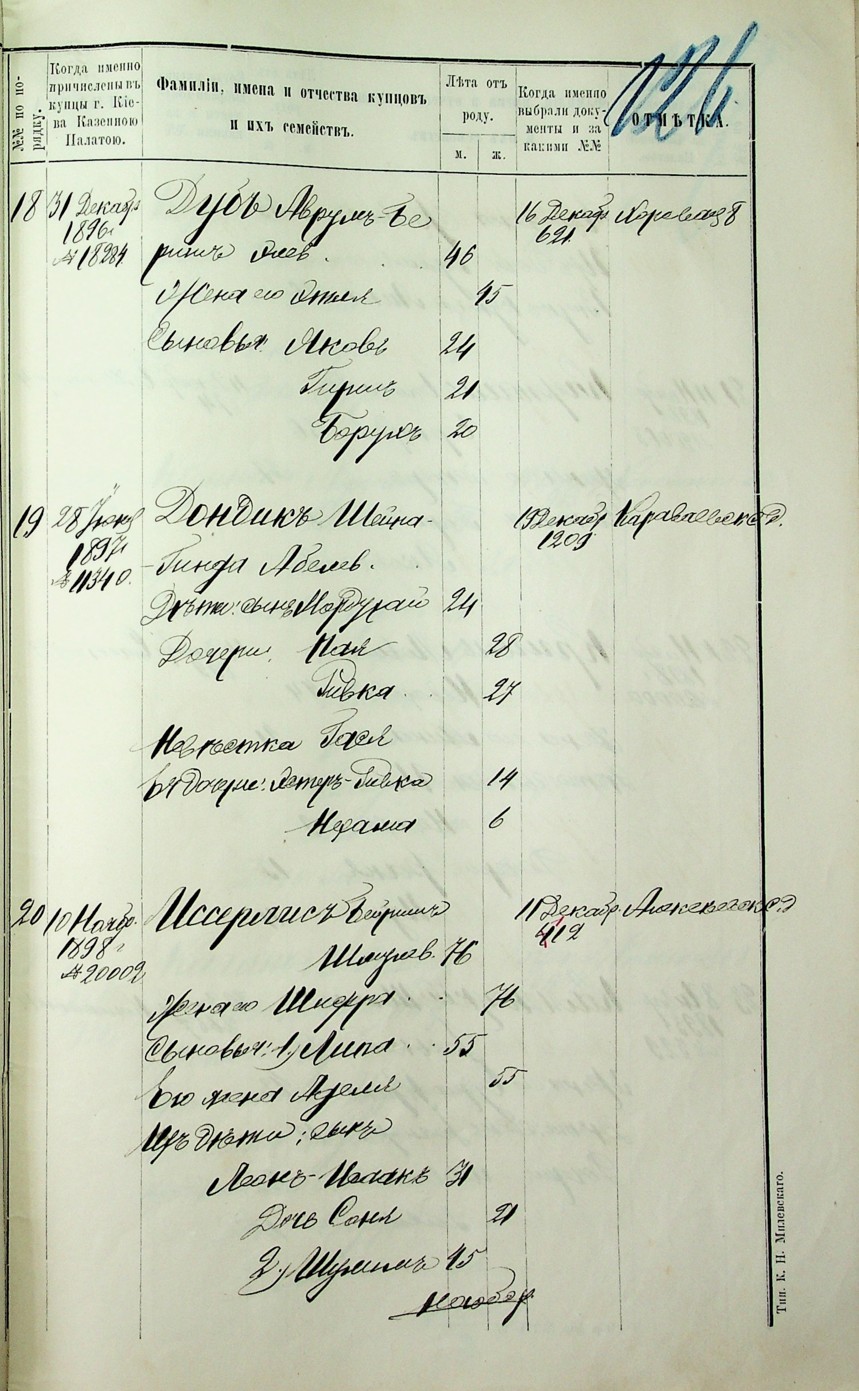 №№ по по-
рядку.
Когда именно
причислены въ
купцы г. Кіе-
ва Казенною
Палатою.
Фамиліи, имена и отчества купцовъ
и ихъ семействъ.
Лѣта отъ
роду.
м. ж.
Когда именно
выбрали доку-
менты и за
какими №№
ОТМѢТКА.
126
18 31 Декабр Дубъ Аврумъ-Бе 16 Декабр
1896 г 621
№ 18284 ришъ 46
Жена его 45
Сыновья: Яковъ 24
Гиршъ 21
Борухъ 20
19 28 Дондикъ Шейна- 19 Декабр Караваевск
1897 г 1209
№ 11340 Гинда Абелев.
Дѣти: сынъ Мордухай 24
Дочери: Хая 28
Ривка 27
Невѣстка Бася
Ея дочери: Эстеръ-Ривка 14
Нехама 6
20 10 Ноябр. Иссерлисъ Бейришъ 11 Декабр.
1898 г 412
№ 20002 Шмулев. 76
Жена его Шифра 76
Сыновья: 1) Липа 55
Его жена Аделя 55
Ихъ дѣти: сынъ
Леонъ-Исаакъ 31
Дочь Соня 21
2) 45
Тип. К. Н. Милевскаго.